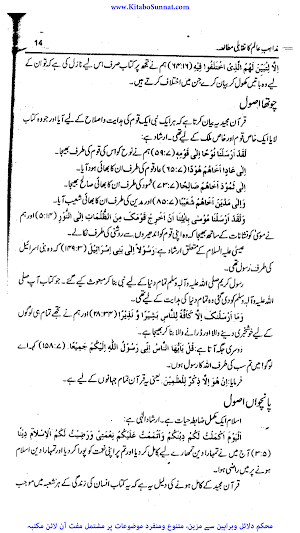 www.KitaboSunnat.com
مذاہب عالم کا تقابلی مطالعہ 14
إِلَّا لِتُبَيِّنَ لَهُمُ الَّذِي اخْتَلَفُوا فِيهِ (۱۶:۶۴) ہم نے تجھ پر کتاب صرف اس لیے نازل کی ہے کہ تو ان کے
لیے وہ باتیں کھول کر بیان کرے جن میں اختلاف کرتے ہیں۔
چوتھا اصول
قرآن مجید یہ بیان کرتا ہے کہ ہر ایک نبی ایک قوم کی ہدایت و اصلاح کے لیے آیا اور جو وہ کتاب
لایا ایک خاص قوم اور خاص ملک کے لیے تھی۔ ارشاد ہے:
لَقَدْ أَرْسَلْنَا نُوحًا إِلَى قَوْمِهِ (۵۹:۷) ہم نے نوح کو اس کی قوم کی طرف بھیجا۔
إِلَى عَادٍ أَخَاهُمْ هُودًا (۶۵:۷) عاد قوم کی طرف ان کا بھائی ہود آیا۔
إِلَى ثَمُودَ أَخَاهُمْ صَالِحًا (۷۳:۷) ثمود کی طرف ان کا بھائی صالح بھیجا۔
وَإِلَى مَدْيَنَ أَخَاهُمْ شُعَيْبًا (۸۵:۷) اور مدین کی طرف ان کا بھائی شعیب آیا۔
وَلَقَدْ أَرْسَلْنَا مُوسَى بِآيَاتِنَا أَنْ أَخْرِجْ قَوْمَكَ مِنَ الظُّلُمَاتِ إِلَى النُّورِ (۵:۱۴) اور ہم
نے موسیٰ کو نشانات کے ساتھ بھیجا کہ وہ اپنی قوم کو اندھیروں سے روشنی کی طرف نکالے۔
عیسیٰ علیہ السلام کے متعلق ارشاد ہے: رَسُولًا إِلَى بَنِي إِسْرَائِيلَ (۴۹:۳) کہ وہ بنی اسرائیل
کی طرف رسول تھی۔
رسول کریم صلی اللہ علیہ وآلہ وسلم تمام دنیا کے لیے نبی بنا کر مبعوث کیے گئے۔ جو کتاب آپ صلی
اللہ علیہ وآلہ وسلم کو دی گئی وہ تمام دنیا کی ہدایت کے لیے تھی۔
وَمَا أَرْسَلْنَاكَ إِلَّا كَافَّةً لِلنَّاسِ بَشِيرًا وَّ نَذِيرًا (۲۸:۳۴) اور ہم نے تجھے تمام ہی لوگوں
کے لیے خوشخبری دینے والا اور ڈرانے والا بنا کر بھیجا ہے۔
دوسری جگہ آتا ہے: قُلْ يَا أَيُّهَا النَّاسُ إِنِّي رَسُولُ اللَّهِ إِلَيْكُمْ جَمِيعًا (۱۵۸:۷) کہہ اے
لوگو! میں تم سب کی طرف اللہ کا رسول ہوں۔
فرمایا: إِنْ هُوَ إِلَّا ذِكْرٌ لِلْعَالَمِينَ یعنی یہ قرآن تمام جہانوں کے لیے ہے۔
پانچواں اصول
اسلام ایک مکمل ضابطہ حیات ہے۔ ارشاد الٰہی ہے:
الْيَوْمَ أَكْمَلْتُ لَكُمْ دِينَكُمْ وَأَتْمَمْتُ عَلَيْكُمْ نِعْمَتِي وَرَضِيتُ لَكُمُ الْإِسْلَامَ دِينًا
(۳:۵) آج میں نے تمہارا دین تمہارے لیے کامل کر دیا اور تم پر اپنی نعمت کو پورا کر دیا اور تمہارا دین اسلام
ہونے پر میں راضی ہوا۔
قرآن مجید کے کامل ہونے کی دلیل یہ ہے کہ یہ کتاب انسان کی زندگی کے ہر شعبہ میں موجب
محکم دلائل وبراہین سے مزین، متنوع ومنفرد موضوعات پر مشتمل مفت آن لائن مکتبہ